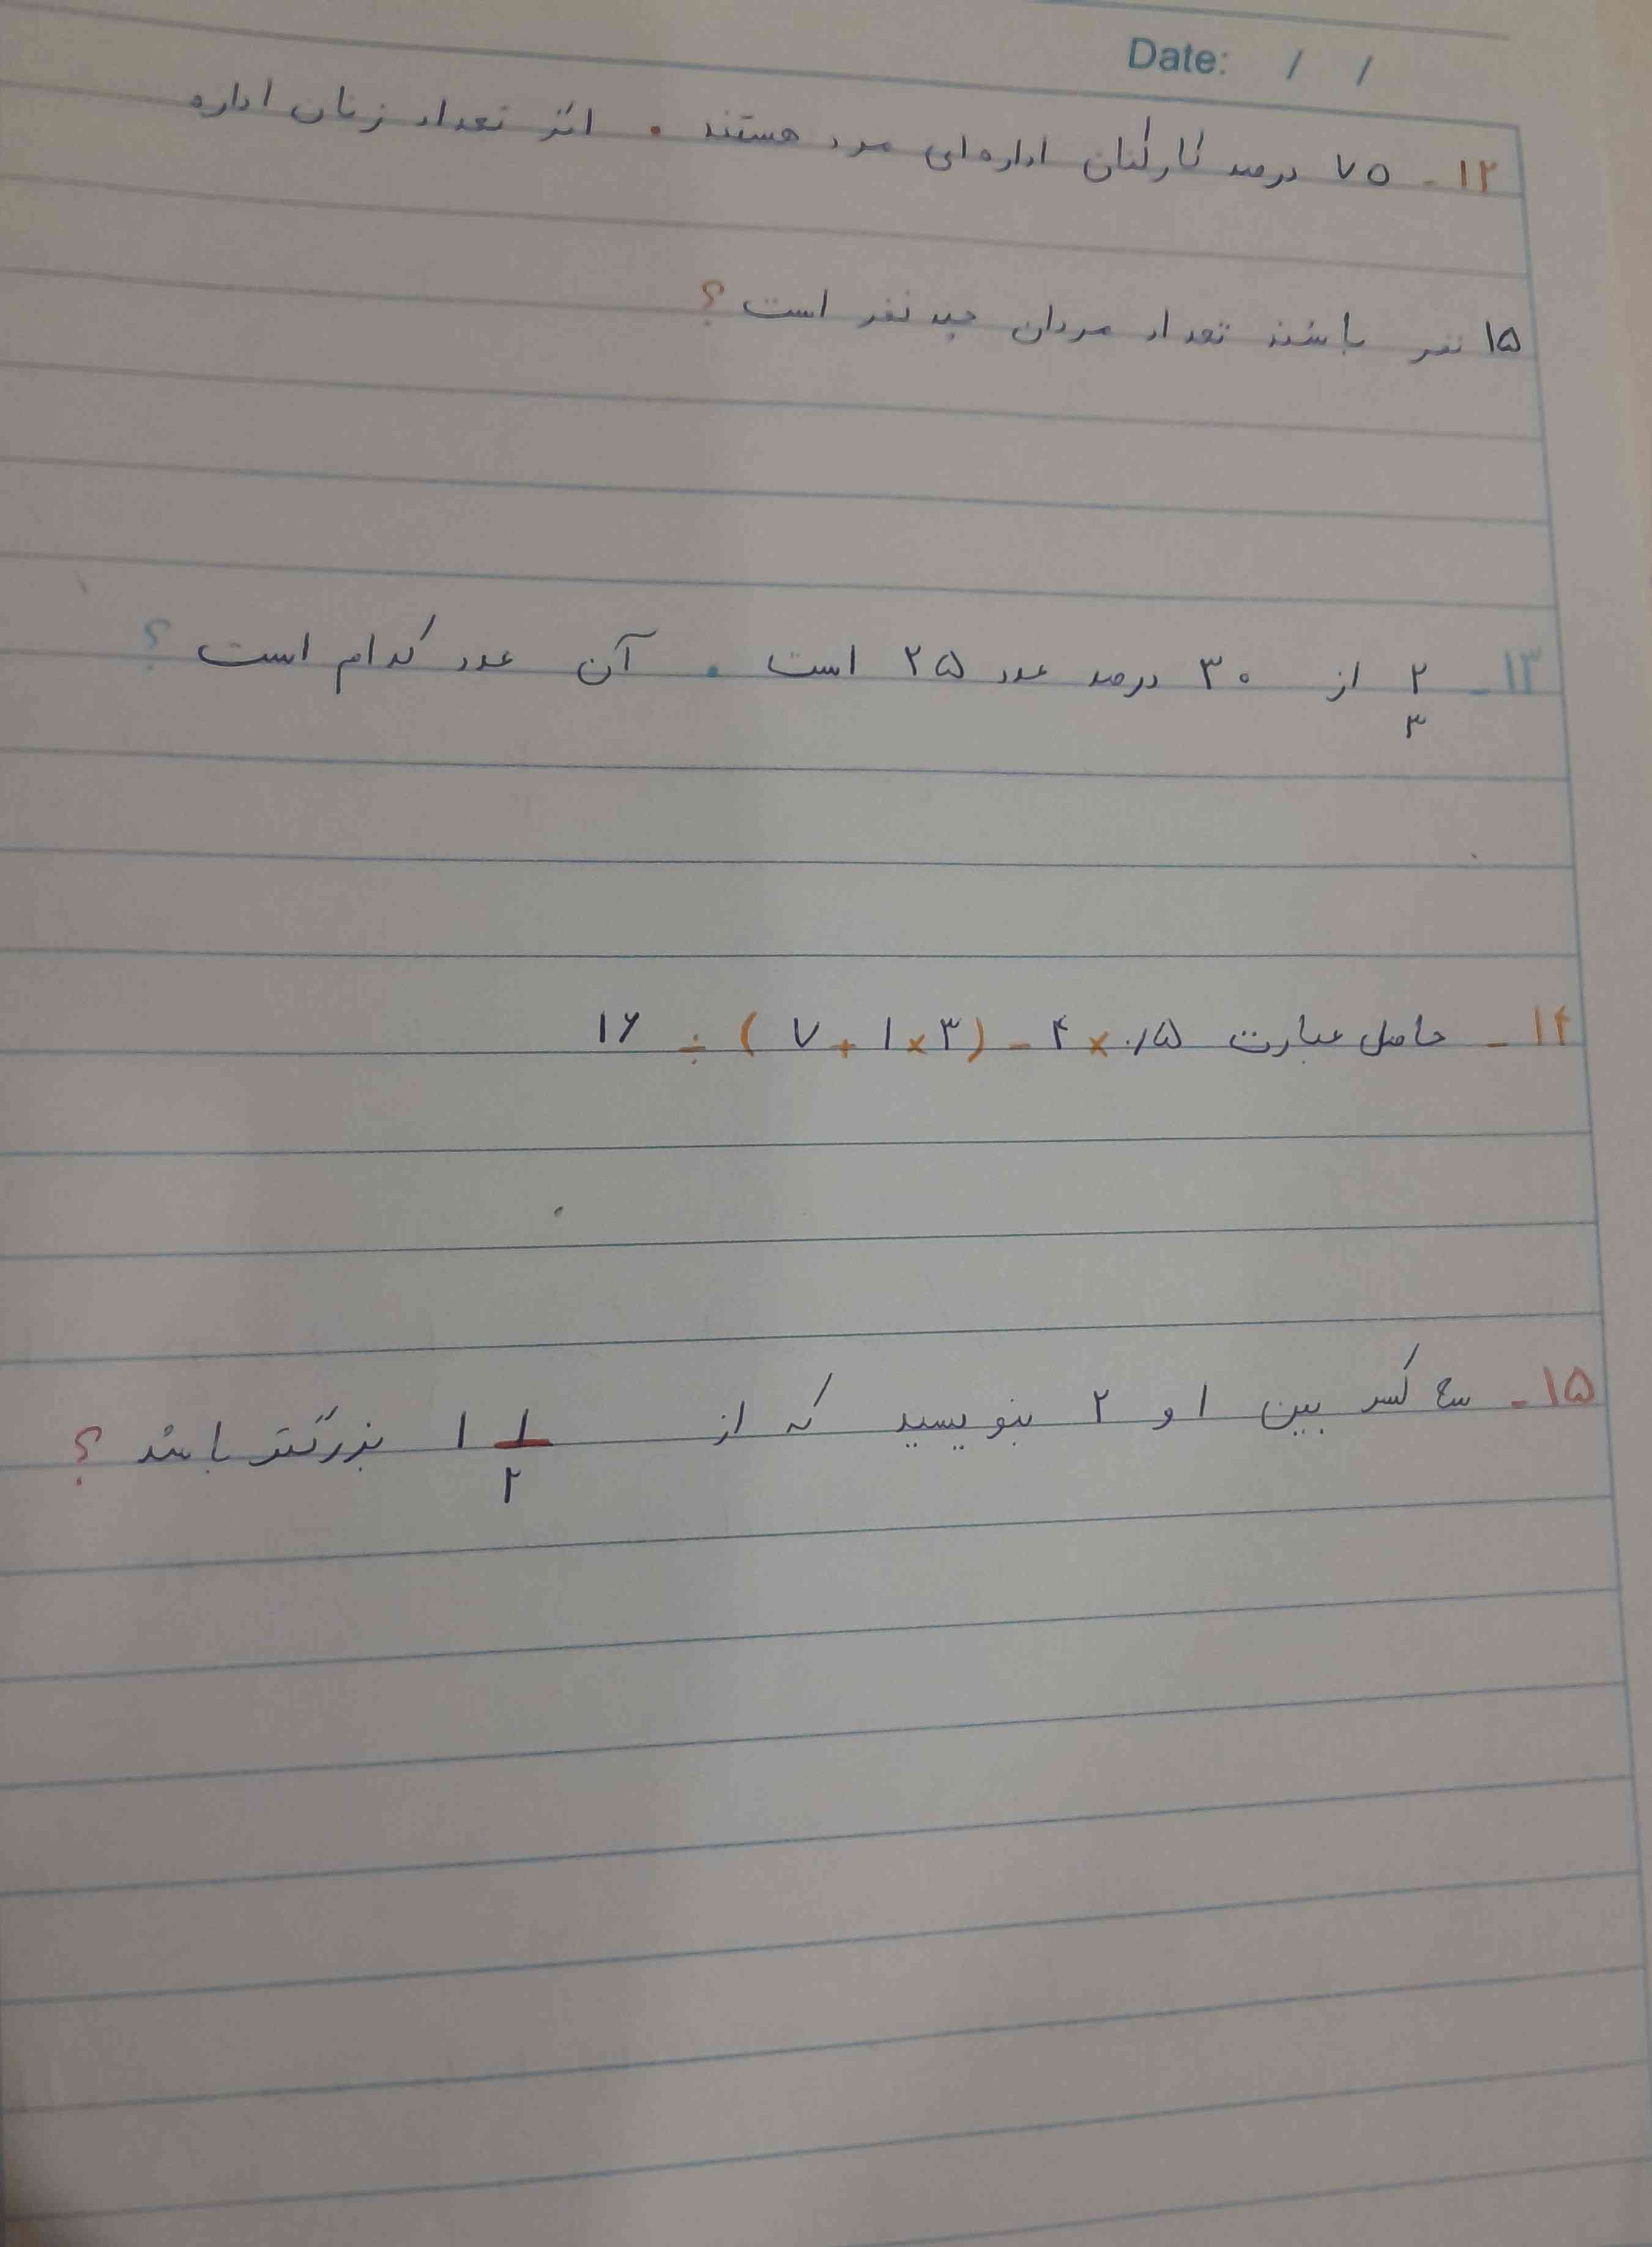 Date: / /
۱۲ - ۷۵ درصد کارکنان اداره‌ای مرد هستند . اگر تعداد زنان اداره
۱۵ نفر باشند تعداد مردان چند نفر است ؟
۱۳ - ۲/۳ از ۳۰ درصد عدد ۲۵ است . آن عدد کدام است ؟
۱۴ - حاصل عبارت ۱۶ ÷ ( ۷ + ۱ × ۳ ) - ۴ × ۰/۵
۱۵ - سه کسر بین ۱ و ۲ بنویسید که از ۱ ۱/۲ بزرگتر باشد ؟